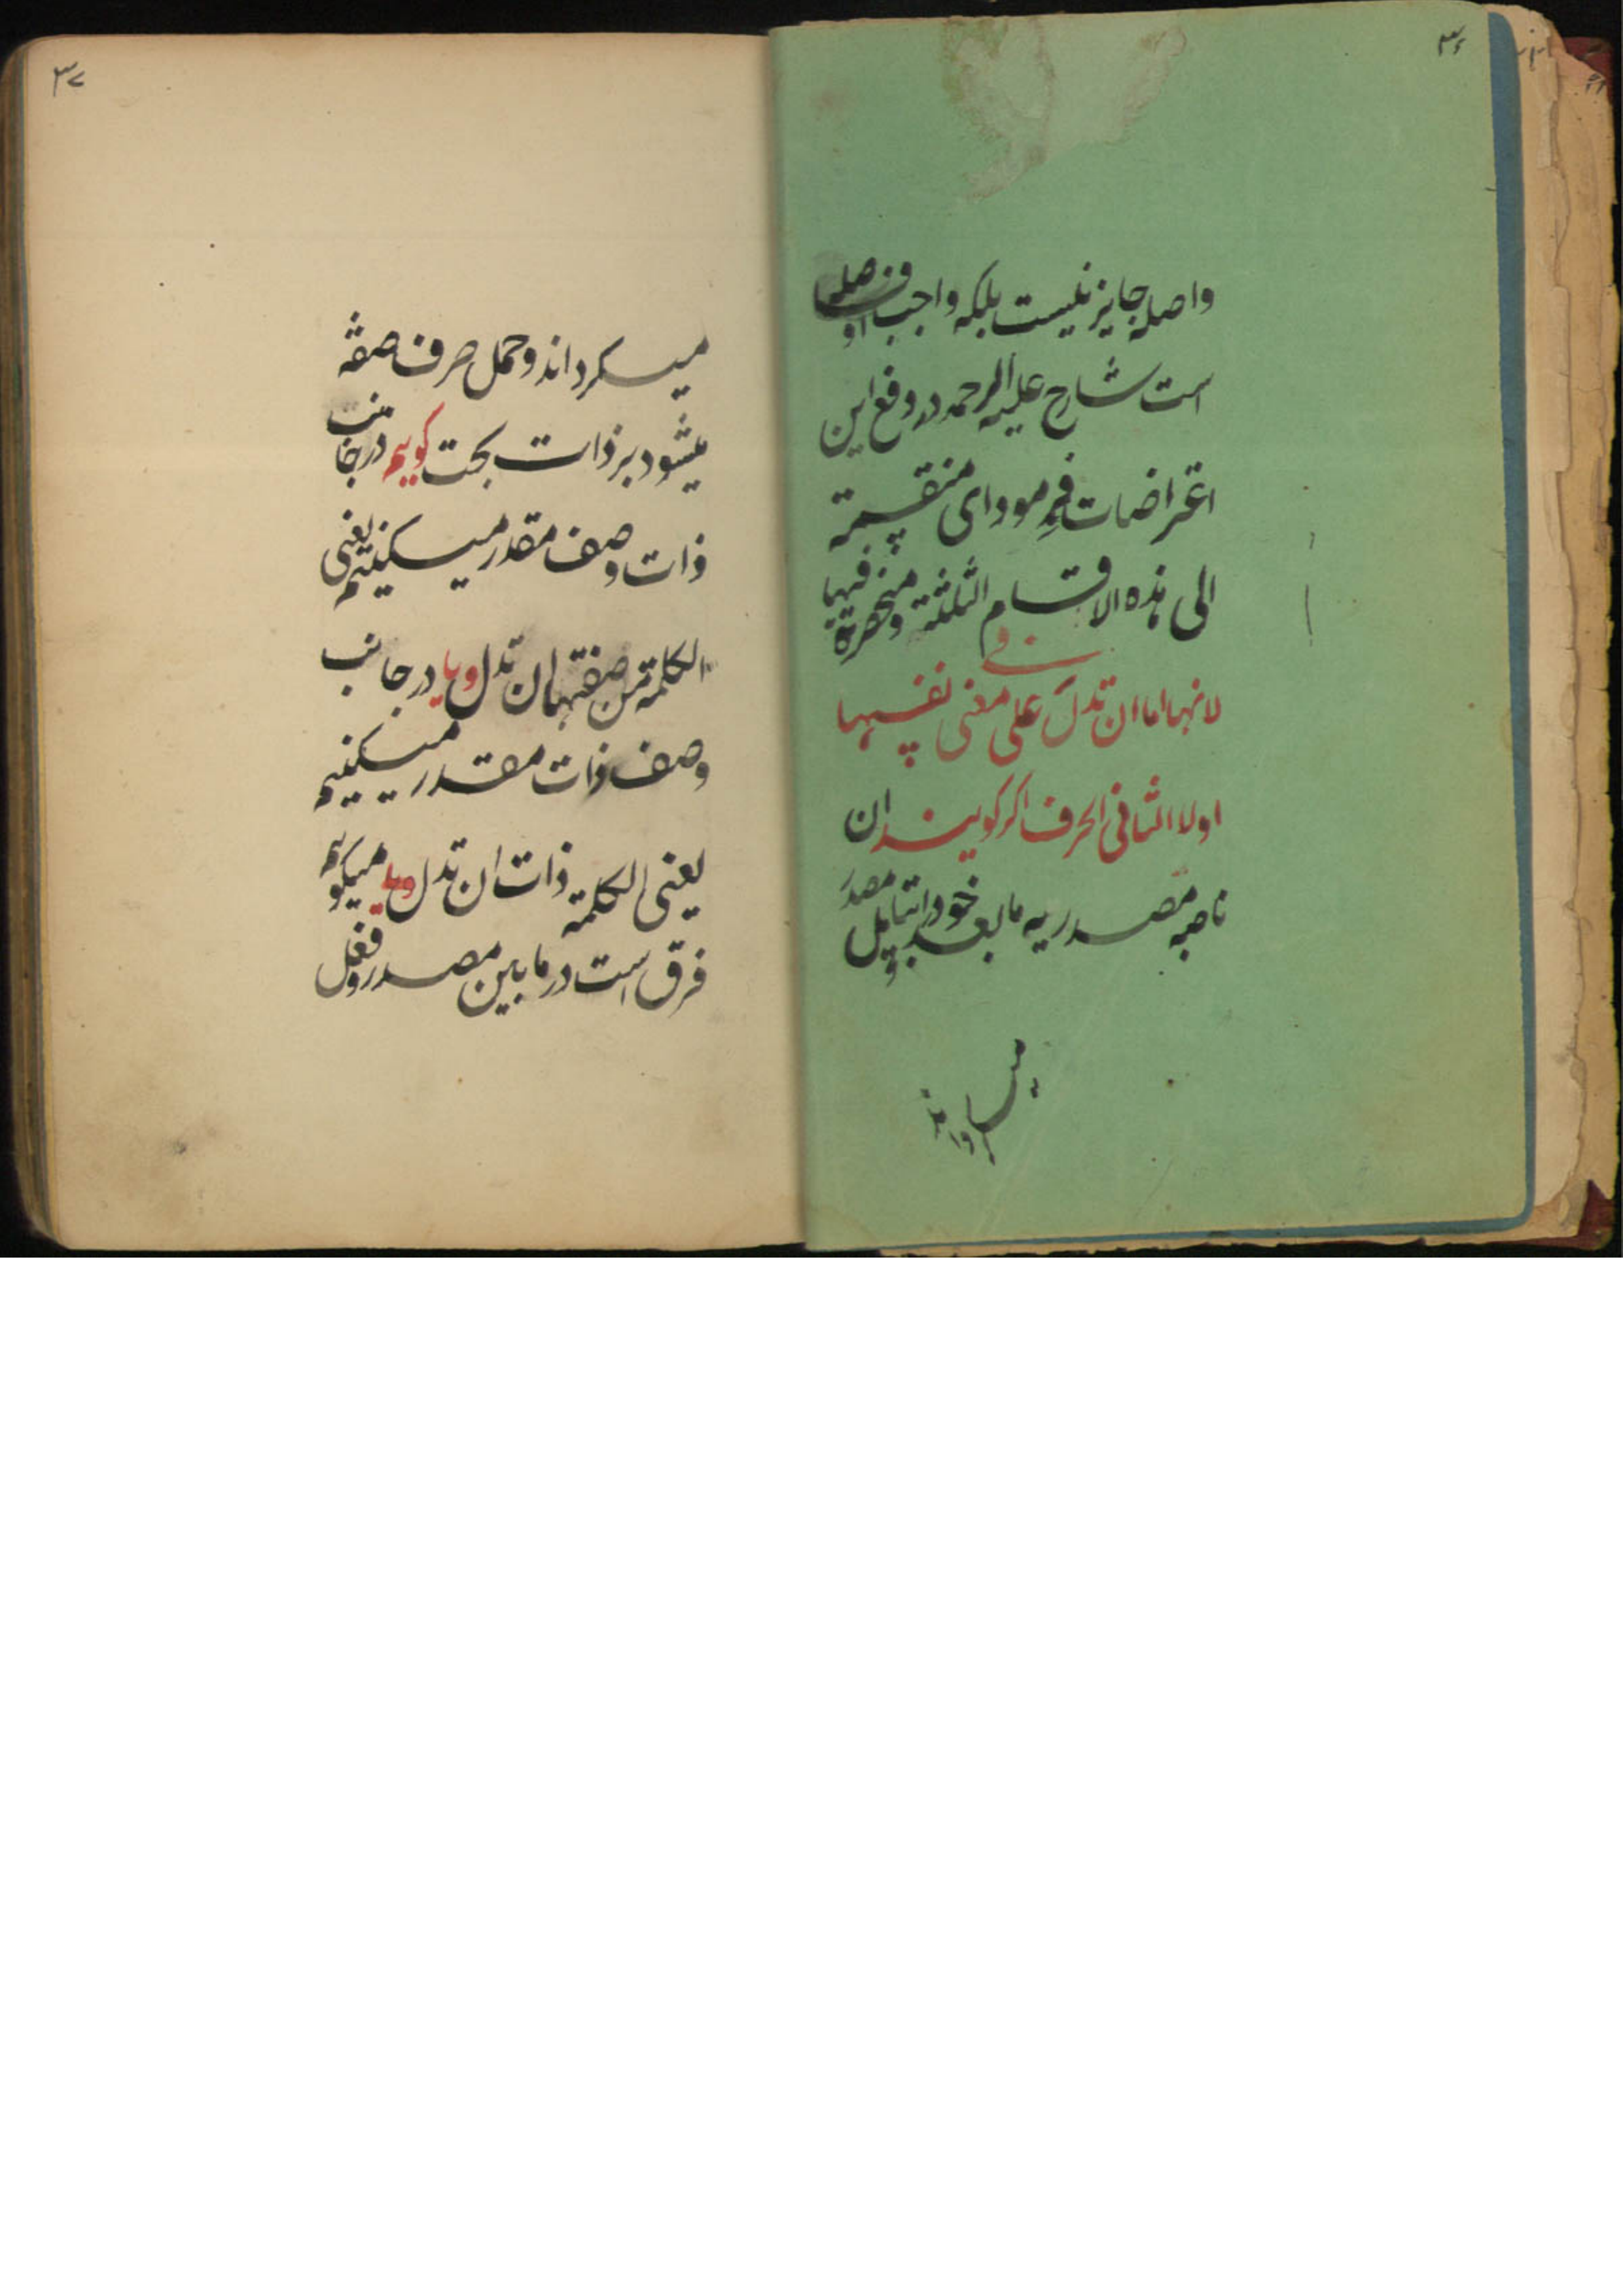 ۳۶
واصله جایز نیست بلکه واجب او فرضله
است شارح علیه الرحمه در دفع این
اعتراضات فرمود ای منقسمة
الی هذه الاقسام الثلثة و منحصرة فیها
لانها اما ان تدل علی معنی فی نفسها
اولا الثانی الحرف اگر گویند ان
ناصبه مصدریه ما بعد خود را بتاویل مصدر
میگرداند
۳۷
میگرداند و حمل صرف صفة
میشود بر ذات بحت گوییم در جانب
ذات وصف مقدر میکنیم یعنی
الکلمة من صفتها ان تدل و یا در جانب
وصف ذات مقدر میکنیم
یعنی الکلمة ذات ان تدل و یا میگوییم
فرق است در ما بین مصدر و فعل